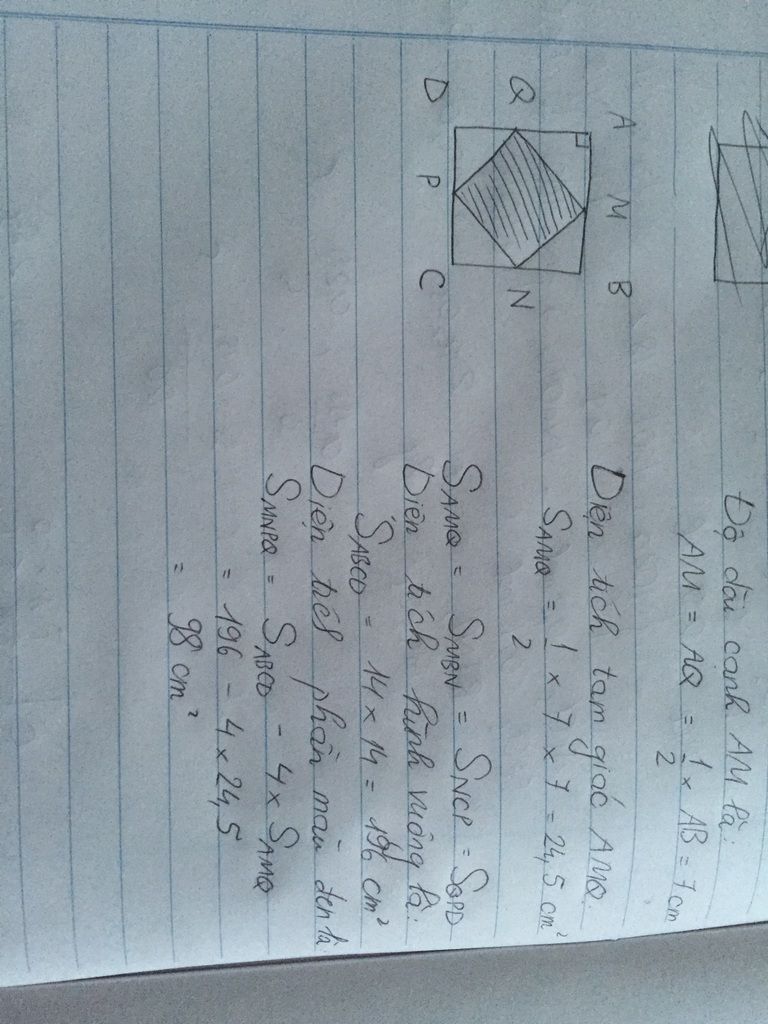 A M B
Q N
D P C
Độ dài cạnh AM là:
AM = AQ = 1/2 x AB = 7 cm
Diện tích tam giác AMQ.
SAMQ = 1/2 x 7 x 7 = 24,5 cm²
SAMQ = SMBN = SNCP = SQPD
Diện tích hình vuông là:
SABCD = 14 x 14 = 196 cm²
Diện tích phần màu đen là:
SMNPQ = SABCD - 4 x SAMQ
= 196 - 4 x 24,5
= 98 cm²